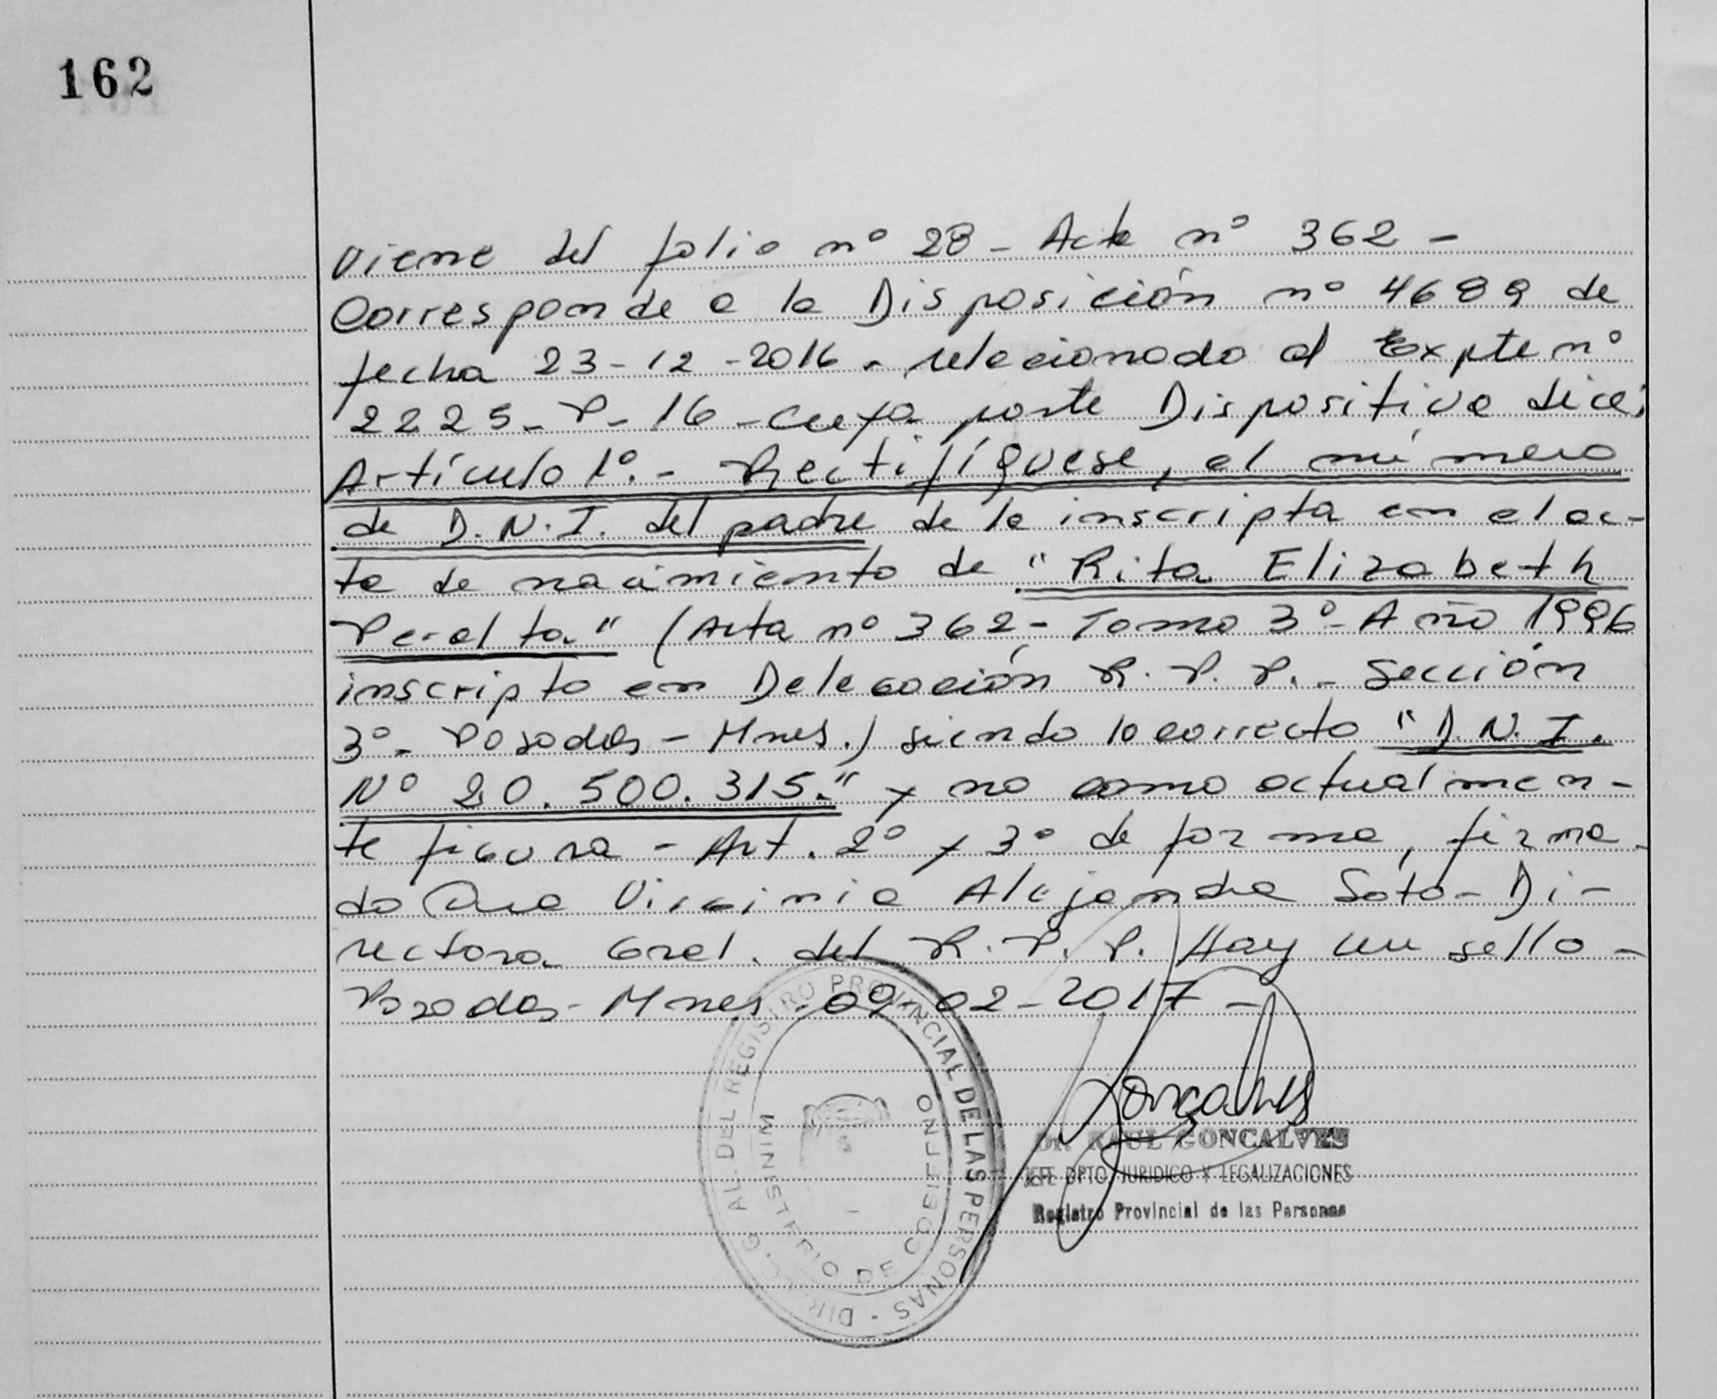 162
Viene del folio nº 28 - Acta nº 362 -
Corresponde a la Disposición nº 4689 de
fecha 23-12-2016 - relacionado al Expte nº
2225-P-16 - Cuya parte Dispositiva dice:
Artículo 1º.- Rectifíquese, el número
de D.N.I. del padre de la inscripta en el ac-
ta de nacimiento de "Rita Elizabeth
Peralta" (Acta nº 362 - Tomo 3º - Año 1996
inscripto en Delegación R.P.P. - Sección
3º - Posadas - Mnes.) siendo lo correcto "D.N.I.
Nº 20.500.315." y no como actualmen-
te figura - Art. 2º y 3º de forma, firma-
do Dra Virginia Alejandra Soto - Di-
rectora Gral. del R.P.P. Hay un sello -
Posadas - Mnes - 09-02-2017 -
DIRECC. GRAL DEL REGISTRO PROVINCIAL DE LAS PERSONAS -
MINISTERIO DE GOBIERNO
Goncalves
Dr. RAUL GONCALVES
JEFE DPTO. JURIDICO Y LEGALIZACIONES
Registro Provincial de las Personas